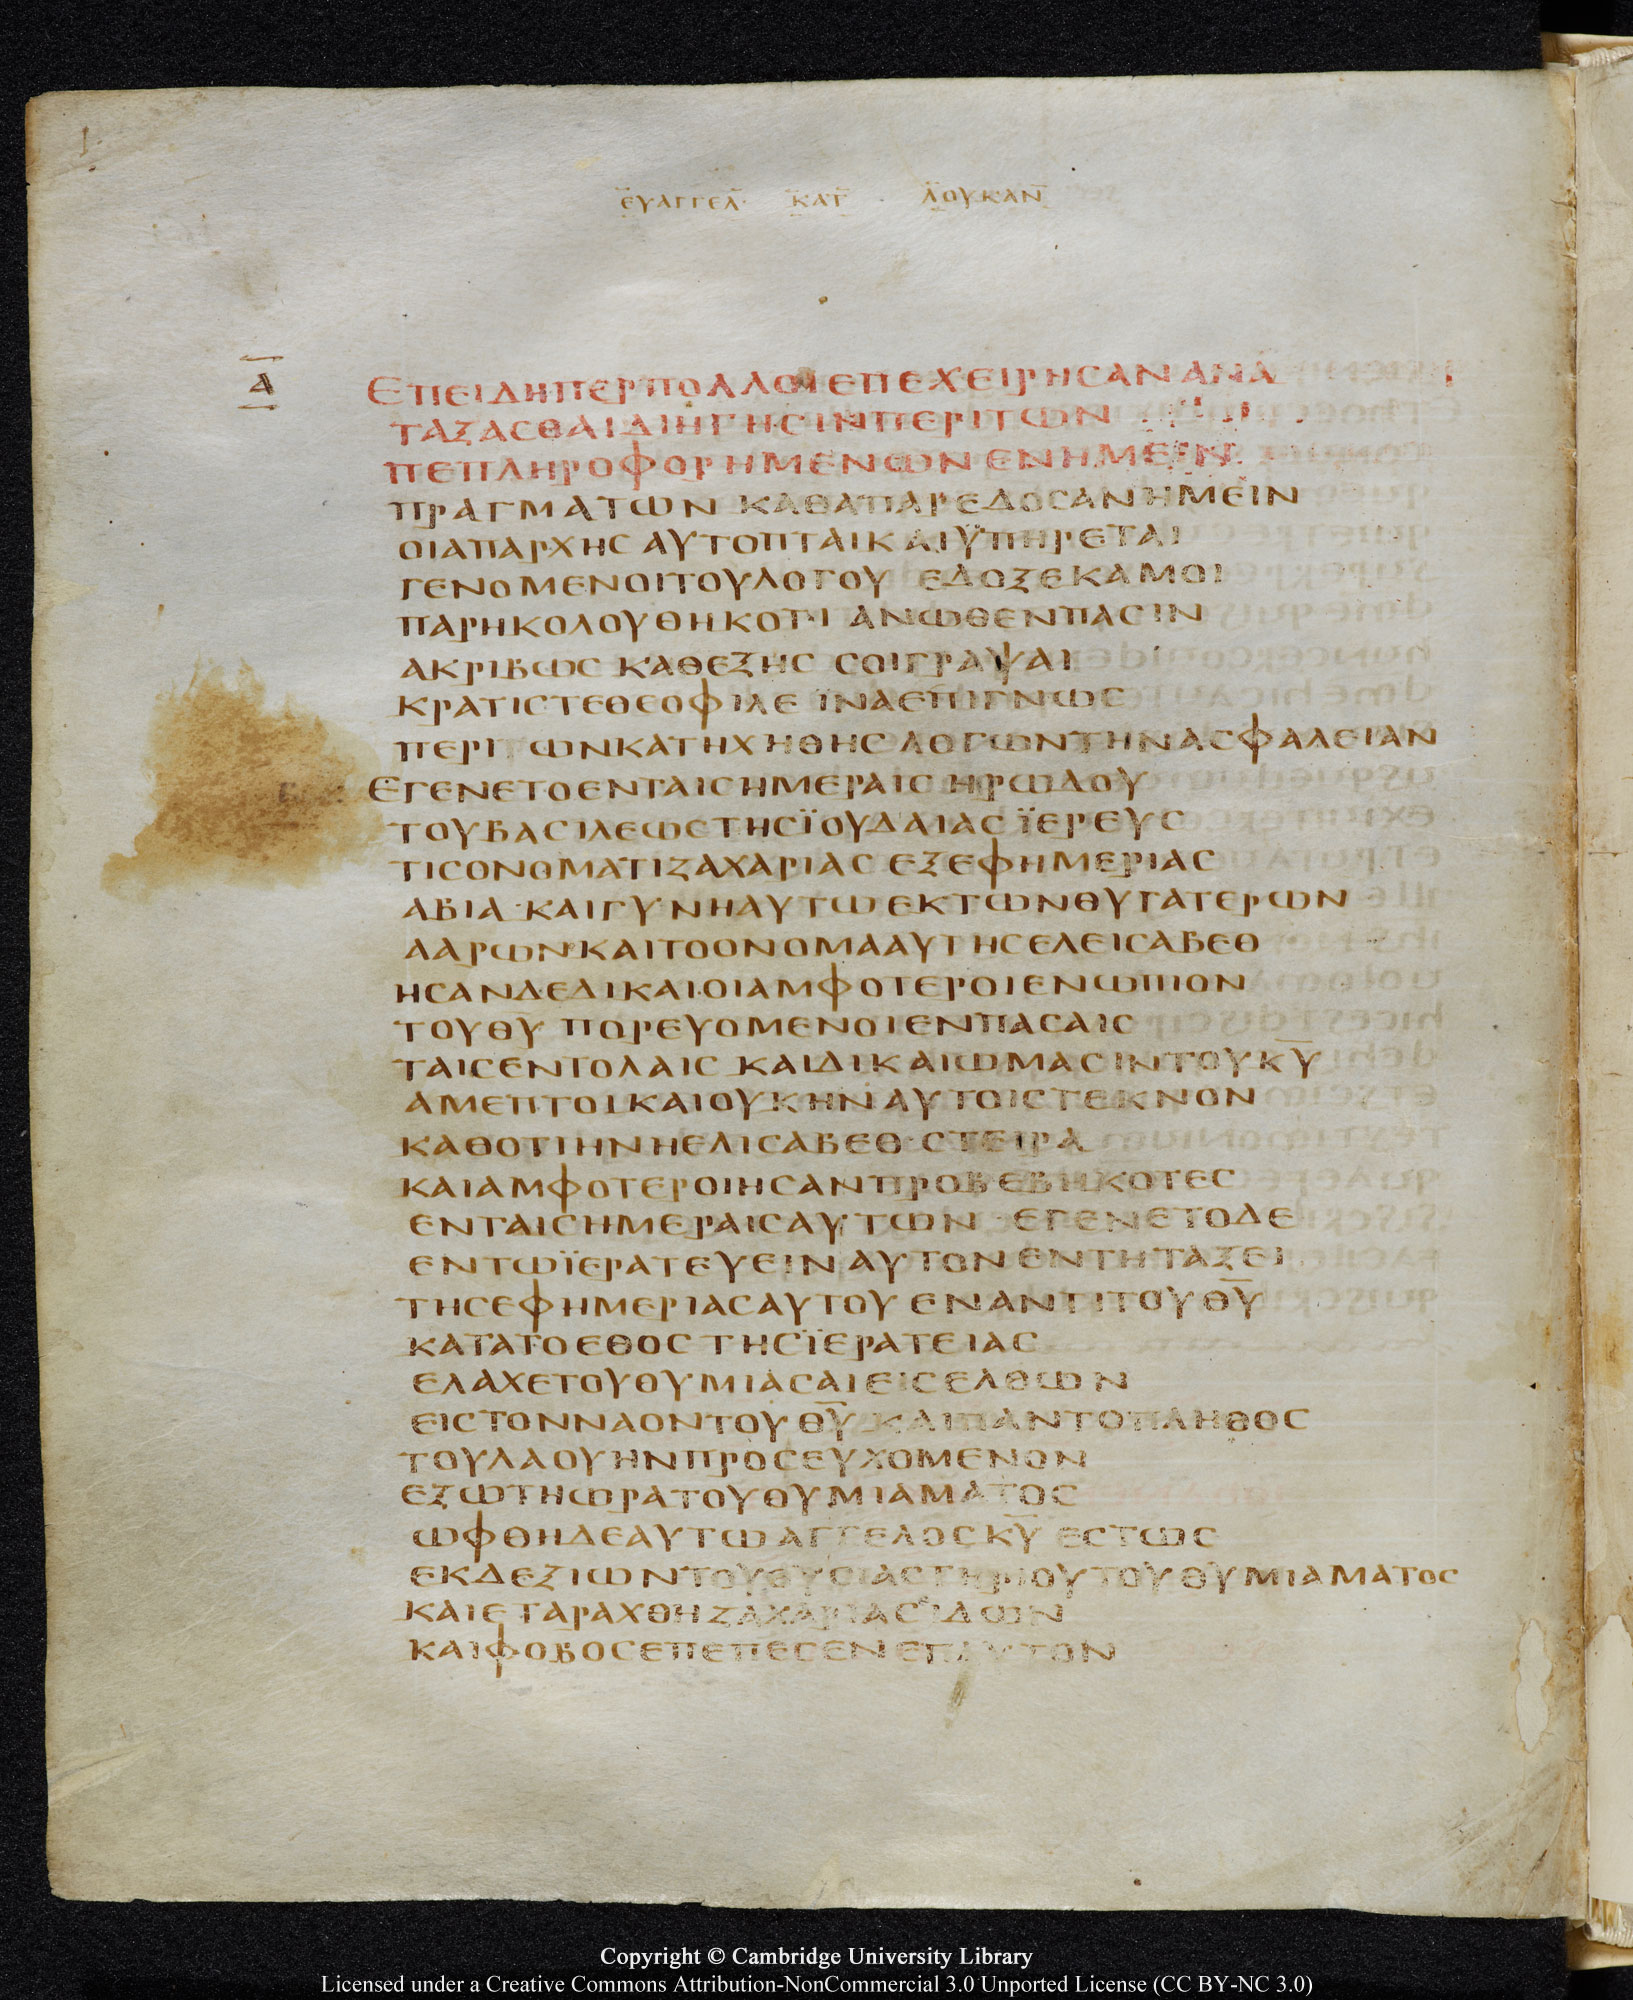 ΕΥΑΓΓΕΛ ΚΑΤ ΛΟΥΚΑΝ
Α
ΕΠΕΙΔΗΠΕΡΠΟΛΛΟΙΕΠΕΧΕΙΡΗСΑΝΑΝΑ
ΤΑΞΑСΘΑΙΔΙΗΓΗСΙΝΠΕΡΙΤΩΝ
ΠΕΠΛΗΡΟΦΟΡΗΜΕΝΩΝΕΝΗΜΕΙΝ
ΠΡΑΓΜΑΤΩΝ ΚΑΘΑΠΑΡΕΔΟСΑΝΗΜΕΙΝ
ΟΙΑΠΑΡΧΗС ΑΥΤΟΠΤΑΙΚΑΙΫΠΗΡΕΤΑΙ
ΓΕΝΟΜΕΝΟΙΤΟΥΛΟΓΟΥ ΕΔΟΞΕΚΑΜΟΙ
ΠΑΡΗΚΟΛΟΥΘΗΚΟΤΙ ΑΝΩΘΕΝΠΑСΙΝ
ΑΚΡΙΒΩС ΚΑΘΕΞΗС СΟΙΓΡΑΨΑΙ
ΚΡΑΤΙСΤΕΘΕΟΦΙΛΕ ΪΝΑΕΠΙΓΝΩС
ΠΕΡΙ ΩΝΚΑΤΗΧΗΘΗС ΛΟΓΩΝΤΗΝΑСΦΑΛΕΙΑΝ
ΕΓΕΝΕΤΟΕΝΤΑΙСΗΜΕΡΑΙС ΗΡΩΔΟΥ
ΤΟΥΒΑСΙΛΕΩСΤΗСΪΟΥΔΑΙΑС ΪΕΡΕΥС
ΤΙСΟΝΟΜΑΤΙΖΑΧΑΡΙΑС ΕΞΕΦΗΜΕΡΙΑС
ΑΒΙΑ·ΚΑΙΓΥΝΗΑΥΤΩ ΕΚΤΩΝΘΥΓΑΤΕΡΩΝ
ΑΑΡΩΝ·ΚΑΙΤΟΟΝΟΜΑΑΥΤΗСΕΛΕΙСΑΒΕΘ
ΗСΑΝΔΕΔΙΚΑΙΟΙΑΜΦΟΤΕΡΟΙΕΝΩΠΙΟΝ
ΤΟΥΘΥ̅ ΠΟΡΕΥΟΜΕΝΟΙΕΝΠΑСΑΙС
ΤΑΙСΕΝΤΟΛΑΙС ΚΑΙΔΙΚΑΙΩΜΑСΙΝΤΟΥΚΥ̅
ΑΜΕΠΤΟΙΚΑΙΟΥΚΗΝΑΥΤΟΙСΤΕΚΝΟΝ
ΚΑΘΟΤΙΗΝΗΕΛΙСΑΒΕΘ·СΤΕΙΡΑ
ΚΑΙΑΜΦΟΤΕΡΟΙΗСΑΝΠΡΟΒΕΒΗΚΟΤΕС
ΕΝΤΑΙСΗΜΕΡΑΙСΑΥΤΩΝ ΕΓΕΝΕΤΟΔΕ
ΕΝΤΩΪΕΡΑΤΕΥΕΙΝΑΥΤΟΝΕΝΤΗΤΑΞΕΙ
ΤΗСΕΦΗΜΕΡΙΑСΑΥΤΟΥ ΕΝΑΝΤΙΤΟΥΘΥ̅
ΚΑΤΑΤΟΕΘΟС ΤΗСΪΕΡΑΤΕΙΑС
ΕΛΑΧΕΤΟΥΘΥΜΙΑСΑΙΕΙСΕΛΘΩΝ
ΕΙСΤΟΝΝΑΟΝΤΟΥΘΥ̅ ΚΑΙΠΑΝΤΟΠΛΗΘΟС
ΤΟΥΛΑΟΥΗΝΠΡΟСΕΥΧΟΜΕΝΟΝ
ΕΞΩΤΗΩΡΑΤΟΥΘΥΜΙΑΜΑΤΟС
ΩΦΘΗΔΕΑΥΤΩ ΑΓΓΕΛΟСΚΥ̅ ΕСΤΩС
ΕΚΔΕΞΙΩΝΤΟΥΘΥСΙΑСΤΗΡΙΟΥΤΟΥΘΥΜΙΑΜΑΤΟС
ΚΑΙΕΤΑΡΑΧΘΗΖΑΧΑΡΙΑСΙΔΩΝ
ΚΑΙΦΟΒΟСΕΠΕΠΕСΕΝΕΠΑΥΤΟΝ
Copyright © Cambridge University Library
Licensed under a Creative Commons Attribution-NonCommercial 3.0 Unported License (CC BY-NC 3.0)